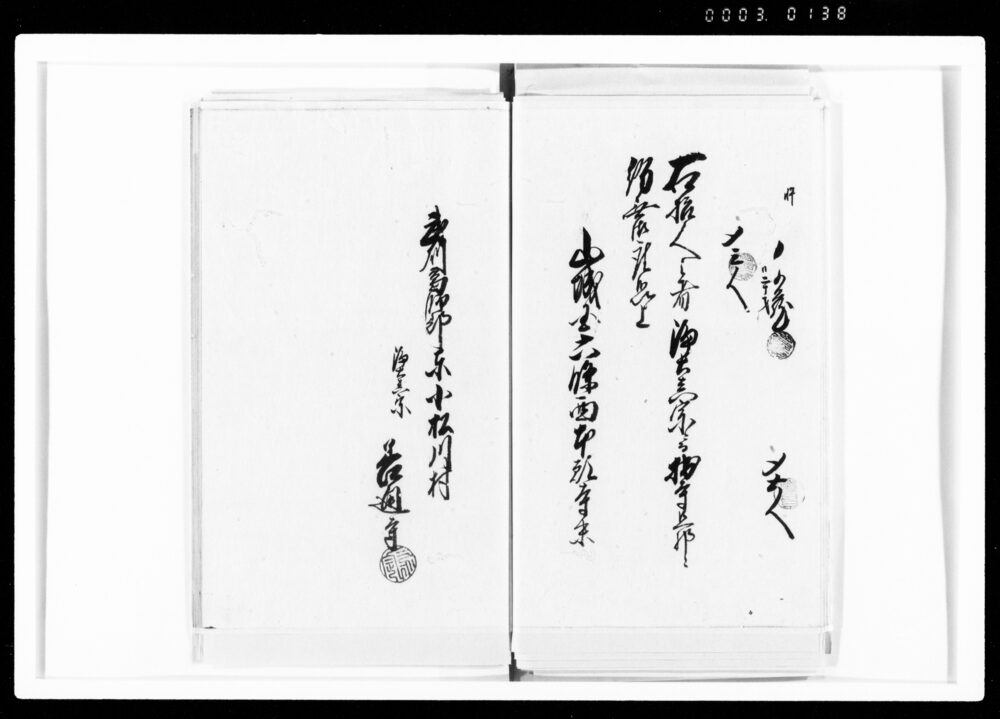 0003. 0138
忰
〆三人
〆七人
右拾人之者浄土真宗ニ而拙寺旦那ニ
紛無御座候以上
山城国六條西本願寺末
武州葛飾郡東小松川村
浄土真宗
寺